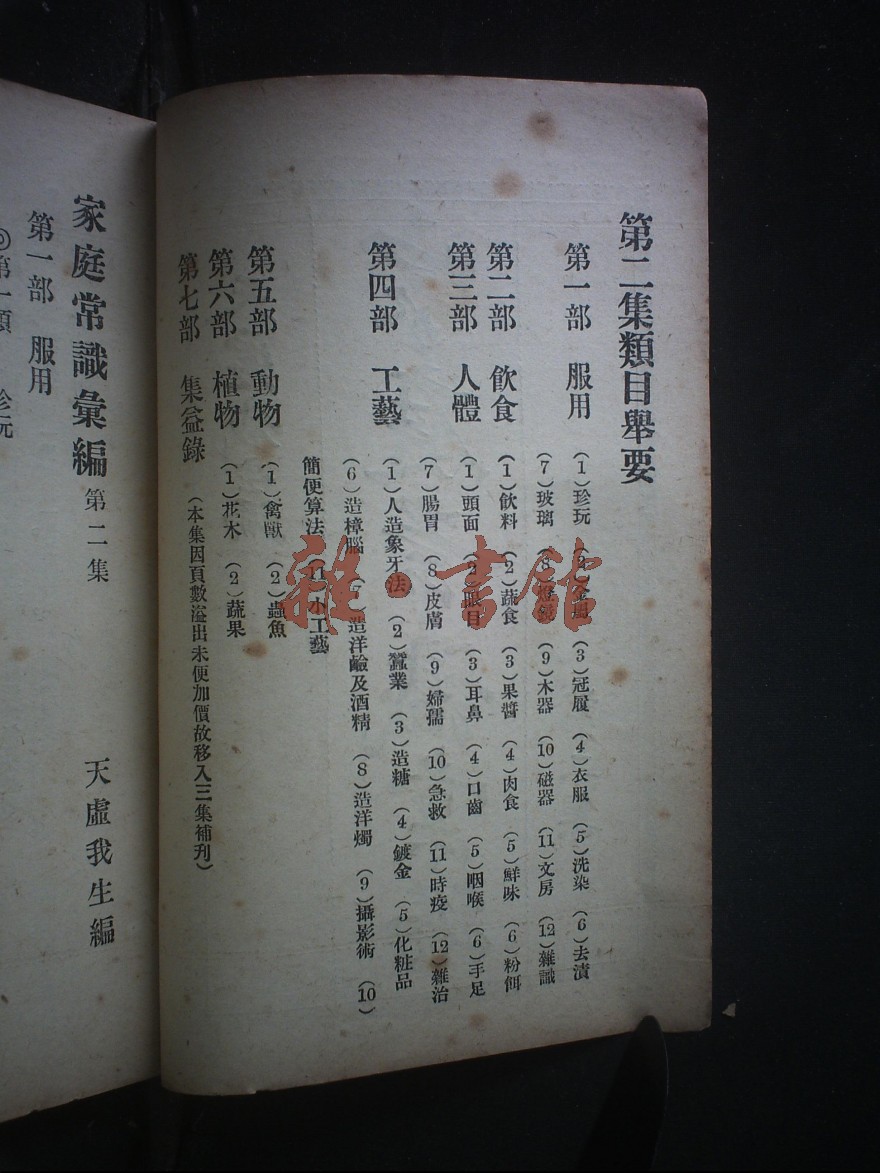 第二集類目舉要
第一部 服用 (1)珍玩 (2)金 (3)冠履 (4)衣服 (5)洗染 (6)去漬
(7)玻璃 (8) (9)木器 (10)磁器 (11)文房 (12)雜識
第二部 飲食 (1)飲料 (2)蔬食 (3)果醬 (4)肉食 (5)鮮味 (6)粉餌
第三部 人體 (1)頭面 (2)眼目 (3)耳鼻 (4)口齒 (5)咽喉 (6)手足
(7)腸胃 (8)皮膚 (9)婦孺 (10)急救 (11)時疫 (12)雜治
第四部 工藝 (1)人造象牙法 (2)蠶業 (3)造糖 (4)鍍金 (5)化粧品
(6)造樟腦 (7)造洋鹼及酒精 (8)造洋燭 (9)攝影術 (10)
簡便算法 (11)小工藝
第五部 動物 (1)禽獸 (2)蟲魚
第六部 植物 (1)花木 (2)蔬果
第七部 集益錄 (本集因頁數溢出未便加價故移入三集補刋)
家庭常識彙編 第二集 天虛我生編
第一部 服用
◎第一類 珍玩
雜·書館